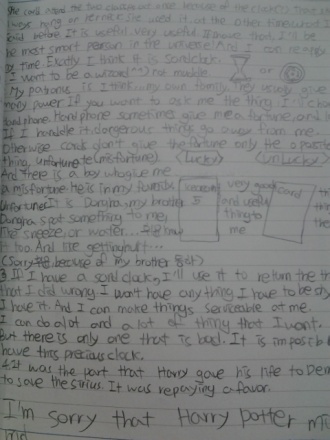 She could use the two clocks at once because of the
always hung on her neck. She used it at the other time
before. It is useful. Very useful. If I have that, I'll be
he most smart person in the universe! And I can
by time. Exactly I think it is sandclock.
I want to be a wizard ^^) not modle. or
My patronus is I think... my own family. They usually give
many power If you want to ask me the thing I'll choo
hand phone. Hand phone sometimes give me a fortune, and
If I handle it, dangerous thing go away from me.
Otherwise card don't give the fortune only the opposite
thing, unfortune(misfortune). (Lucky) (Unlucky)
And there is a boy who give me
a misfortune. He is in my family.
Unfortune. It is Dongha, my brother
Dongha spat something to me,
The sneeze, or water...
it too. And like getting hurt...
very good and useful thing to me
card
thi
thin
me
(Sorry because of my brother
3. If I have a sand clock, I'll use it to return the
that I did wrong. I won't have any thing I have to be sh
I have it. And I can make things serviceable at me.
I can do a lot and a lot of thing that I want.
But there is only one that is bad. It is impossible
have this precious clock.
4. It was the part that Harry gave his life to Dem
to save the sirius. It was repaying a favor.
I'm sorry that Harry potter